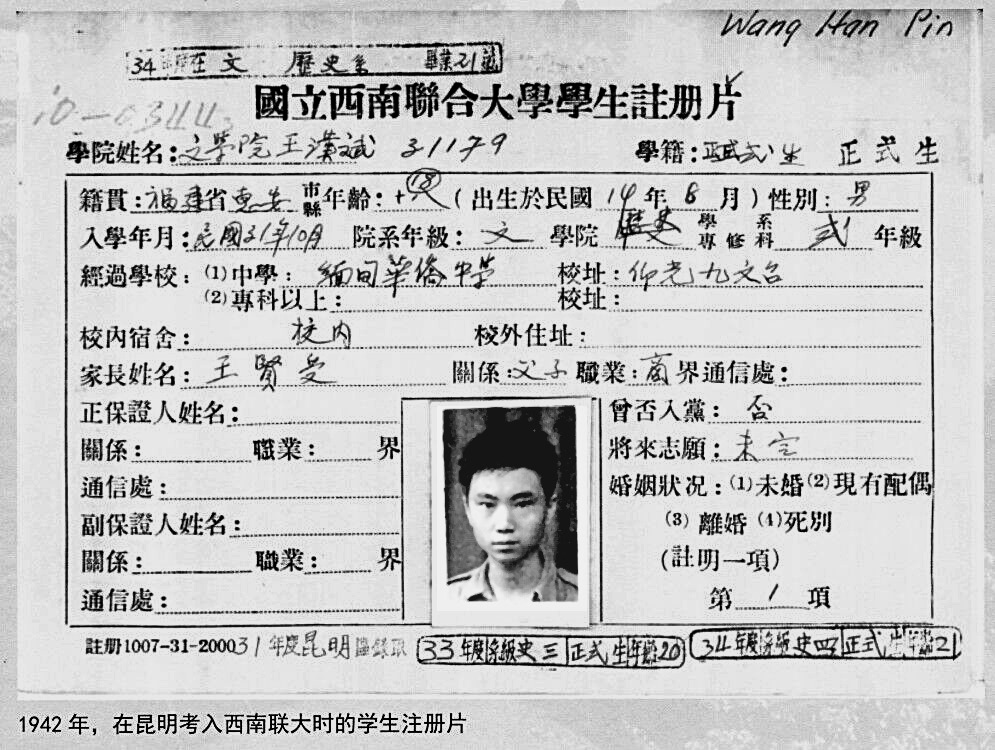 Wang Han Pin
34 在 文 歷史系 畢業21
國立西南聯合大學學生註册片
學院姓名：文學院王漢斌 31179 學籍：正式生 正式生
籍貫：福建省惠安市縣年齡：十八（出生於民國14年8月）性別：男
入學年月：民國31年10月 院系年級：文 學院 歷史 學系專修科 弍 年級
經過學校：(1)中學：緬甸華僑中學 校址：仰光九文台
(2)專科以上： 校址：
校內宿舍：校内 校外住址：
家長姓名：王賢受 關係：父子 職業：商界通信處：
正保證人姓名：
關係： 職業： 界
通信處：
副保證人姓名：
關係： 職業： 界
通信處：
曾否入黨：否
將來志願：未定
婚姻狀況：(1)未婚(2)現有配偶
(3)離婚(4)死別
(註明一項)
第 1 項
註册1007-31-2000 31年度昆明區錄取 33年度級史三 正式生年齡20 34年度級史四 正式生年齡21
1942年，在昆明考入西南联大时的学生注册片